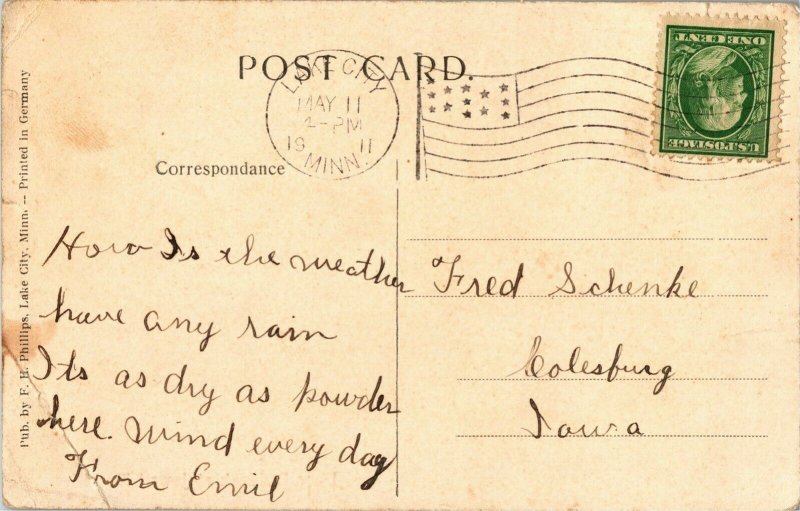 POST CARD.
LAKE CITY
MAY 11
2-PM
19 11
MINN.
ONE CENT
U.S. POSTAGE
Correspondance
Pub. by F. H. Phillips, Lake City, Minn. -- Printed in Germany
How Is the weather
have any rain
Its as dry as powder
here. Wind every day
From Emil
Fred Schenke
Colesburg
Iowa